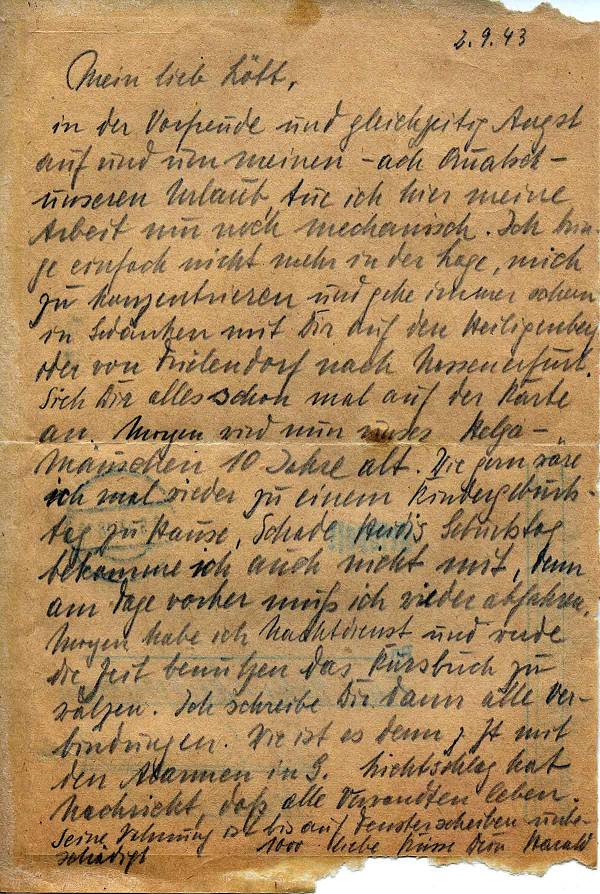 2.9.43
Mein lieb Lött,
in der Vorfreude und gleichzeitig Angst
auf und um meinen - ach Quatsch -
unseren Urlaub, tue ich hier meine
Arbeit nur noch mechanisch. Ich brin-
ge einfach nicht mehr in der Lage, mich
zu konzentrieren und gehe immer schon
in Gedanken mit Dir auf den Heiligenberg
oder von Frielendorf nach Nassenerfurt.
Sieh Dir alles schon mal auf der Karte
an. Morgen wird nun unser Helga-
mäuschen 10 Jahre alt. Wie gern wäre
ich mal wieder zu einem Kindergeburts-
tag zu Hause, Schade Heidis Geburtstag
bekomme ich auch nicht mit, denn
am Tage vorher muß ich wieder abfahren.
Morgen habe ich Nachtdienst und werde
die Zeit benutzen das Kursbuch zu
wälzen. Ich schreibe Dir dann alle Ver-
bindungen. Wie ist es denn z. Zt mit
den Alarmen in G. hat
Nachricht, daß alle Verwandten leben.
Seine Wohnung ist bis auf Fensterscheiben unbe-
schädigt 1000 liebe Küsse Dein Harald